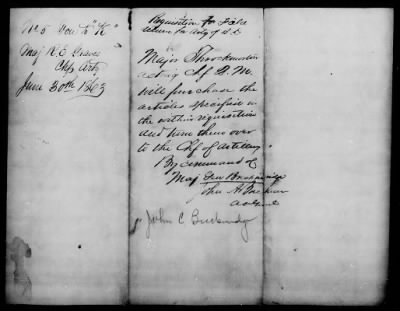 No 5 Vou to "K"
Maj R. E. Graves
Chf Arty
June 30th 1863
Requisition for Field
for Arty of
Major Throckmorton
acting Chf Q. M.
will purchase the
articles specified in
the within requisition
and turn them over
to the Chf of artillery
By command of
Maj Gen Breckinridge
John C Breckinridge